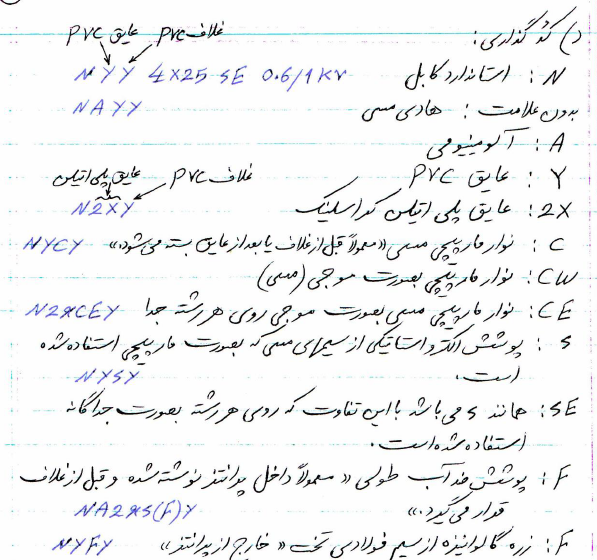 د) کد گذاری:
عایق PVC غلاف PVC
N: استاندارد کابل NYY 4x25 SE 0.6/1KV
بدون علامت: هادی مسی NAYY
A: آلومینیومی
Y: عایق PVC
عایق پلی اتیلن غلاف PVC
2X: عایق پلی اتیلن کراسلینک N2XY
C: نوار مارپیچی مسی «معمولاً قبل از غلاف یا بعد از عایق بسته می‌شود» NYCY
CW: نوار مارپیچی بصورت موجی (مسی)
CE: نوار مارپیچی مسی بصورت موجی روی هر رشته جدا N2XCEY
S: پوشش الکترواستاتیکی از سیمهای مسی که بصورت مارپیچی استفاده شده
است. NYSY
SE: همانند S می باشد با این تفاوت که روی هر رشته بصورت جداگانه
استفاده شده است.
F: پوشش ضد آب طولی « معمولاً داخل پرانتز نوشته شده و قبل از غلاف
قرار می گیرد.» NA2XS(F)Y
F: زره گالوانیزه از سیم فولادی تخت « خارج از پرانتز » NYFY